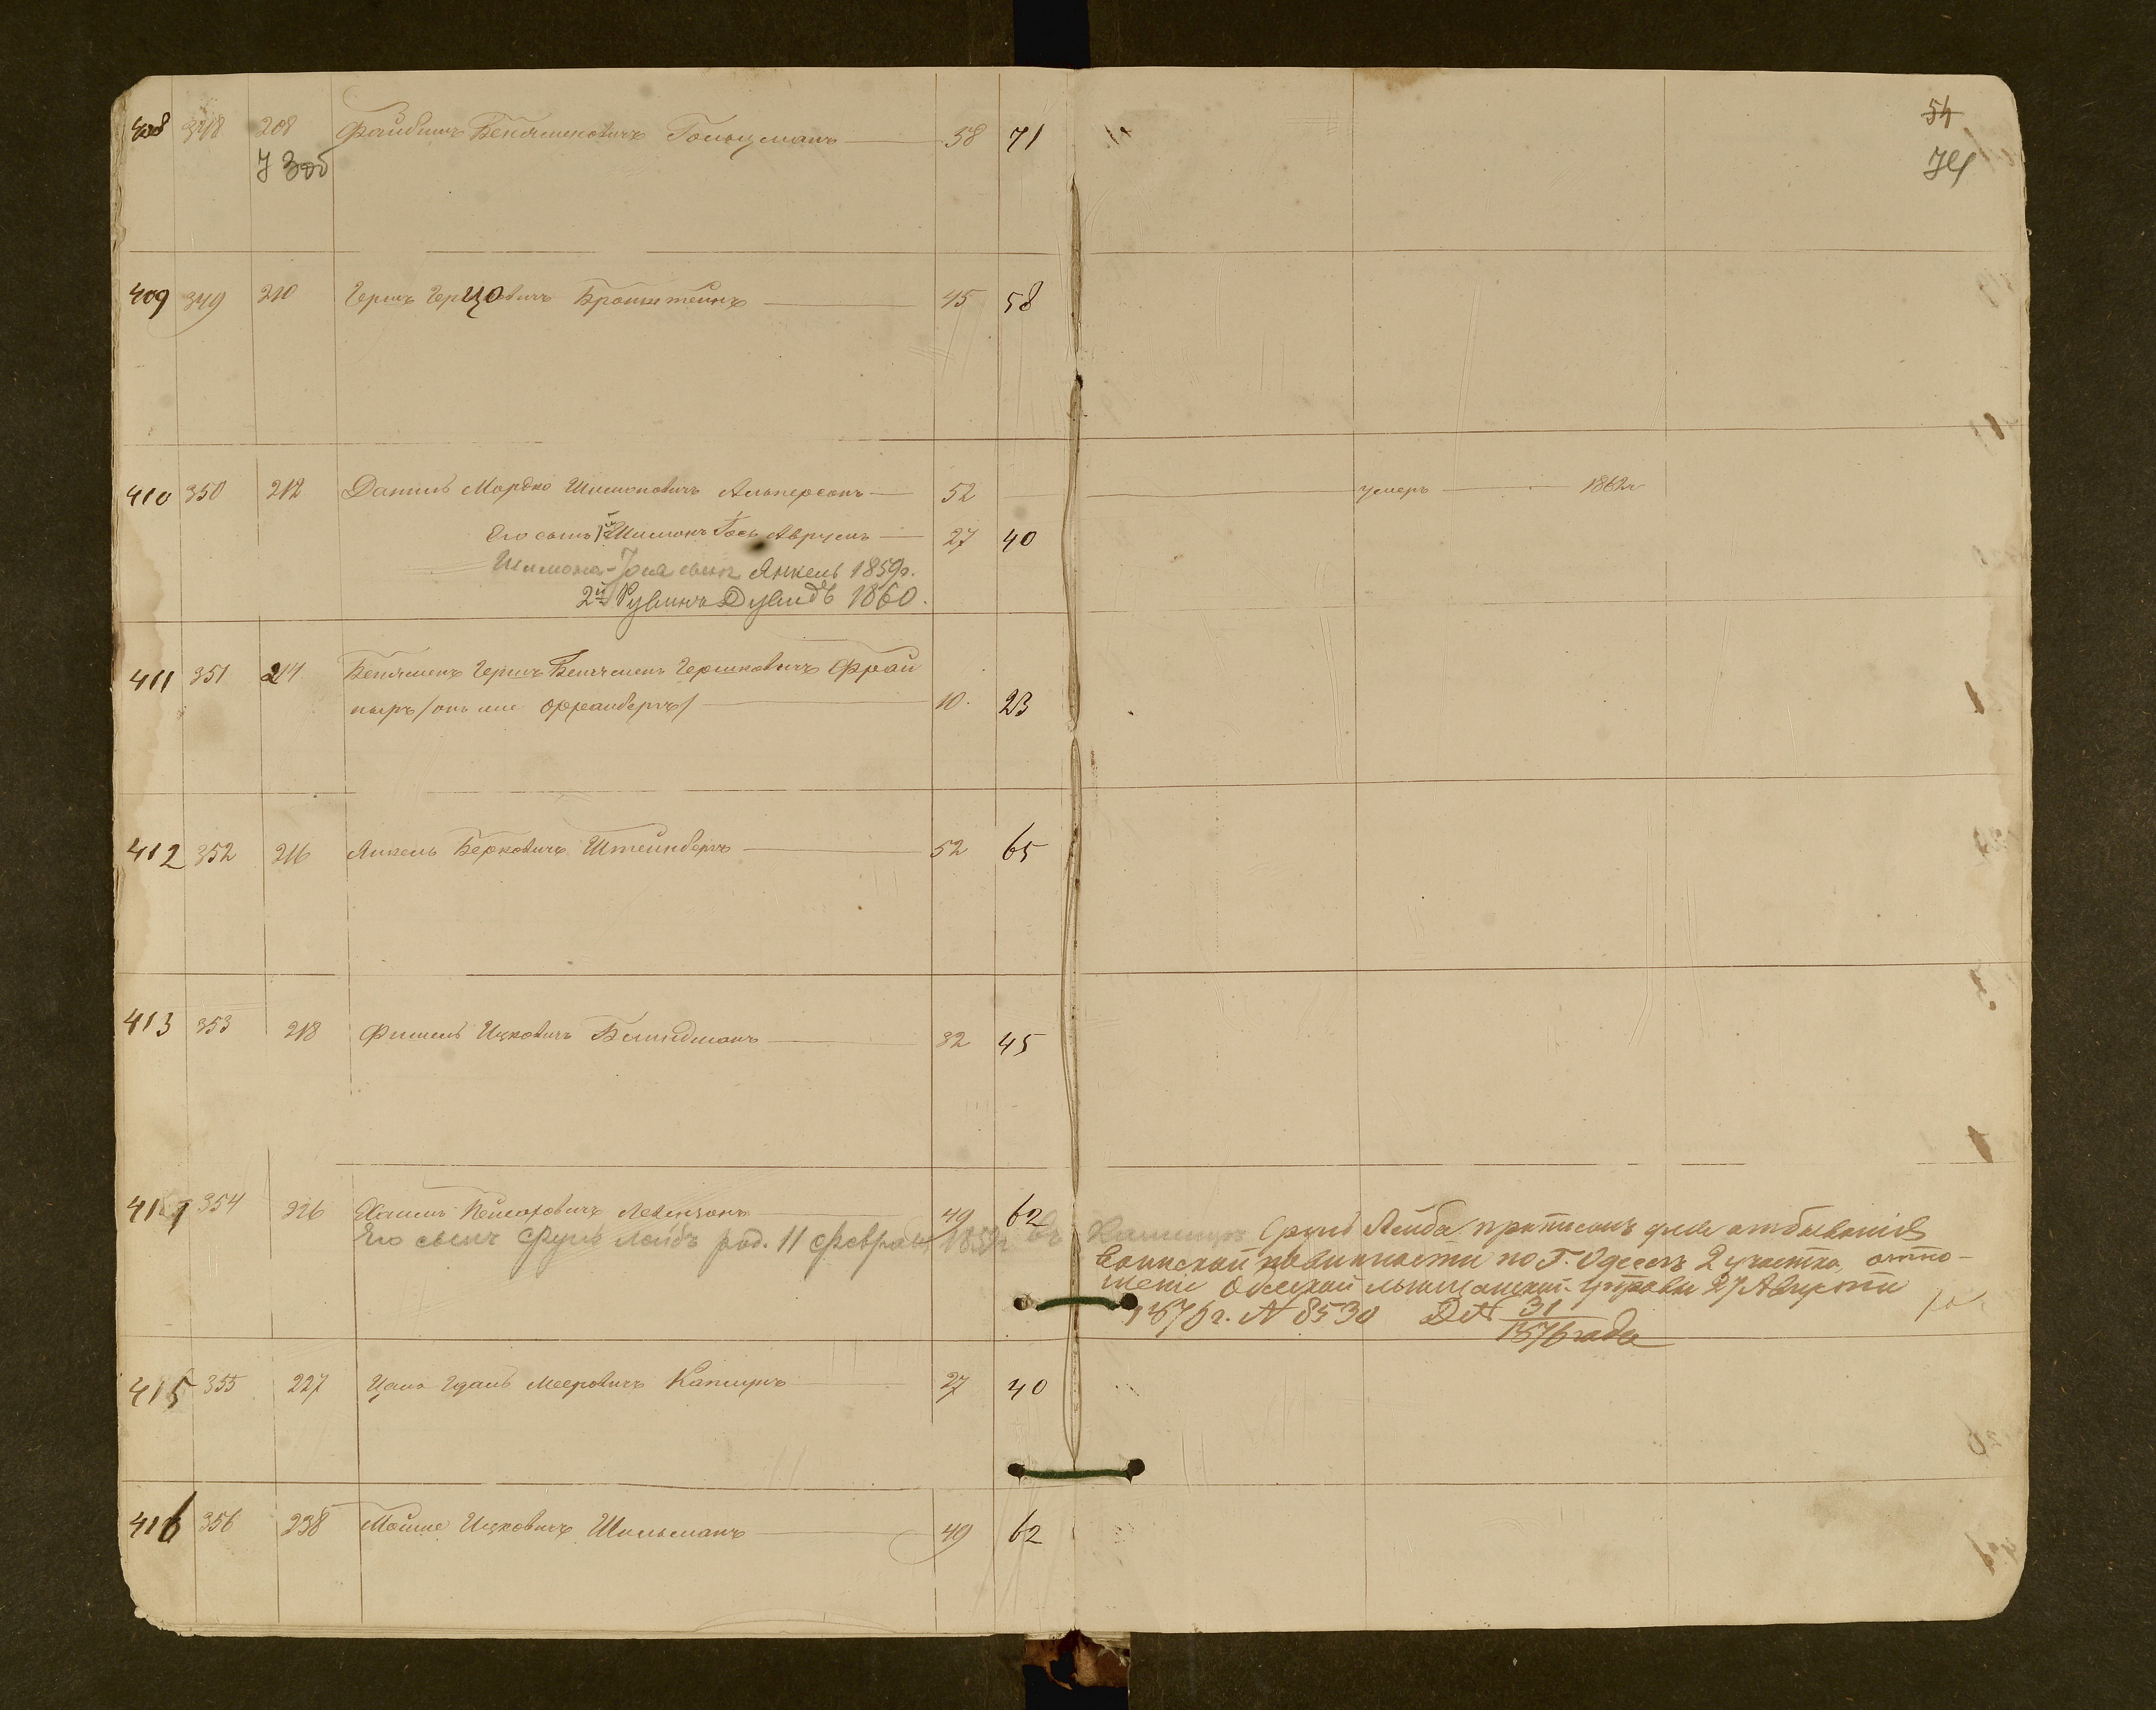 54
74
408 348 208 Файбишъ Беняминовичъ Гольцманъ 58 71
409 349 210 Гершъ Герцовичъ Бронштейнъ 45 58
410 350 212 Даниль Мордко Шимоновичъ Альперсонъ 52 умеръ 1862г
Его сынъ 1й Шимонъ Іось Аврумъ 27 40
Шимона-Іося сынъ Янкель 1859г.
2й Рувинъ Дувидъ 1860.
411 351 214 Бенямень Гершъ Бенямень Гершковичъ Фрай
ныръ (онъ же Офрайберъ) 10. 23
412 352 216 Янкель Берковичъ Штейнбергъ 52 65
413 353 218 Фишель Ицковичъ Блиндманъ 32 45
354 226 Левензонъ 49 62
Его сынъ Сруль Лейбъ род. 11 февраля
Сруль Лейба приписанъ для отбыванія
воинской повинности по Г. Одессѣ 2 участка, отно-
шеніе Одесской мѣщанской Управы 27 Августа
1876г. № 8530 31
1876 года
415 355 227 Мееровичъ 27 40
416 356 238 Мойше Ицковичъ Шильманъ 49 62